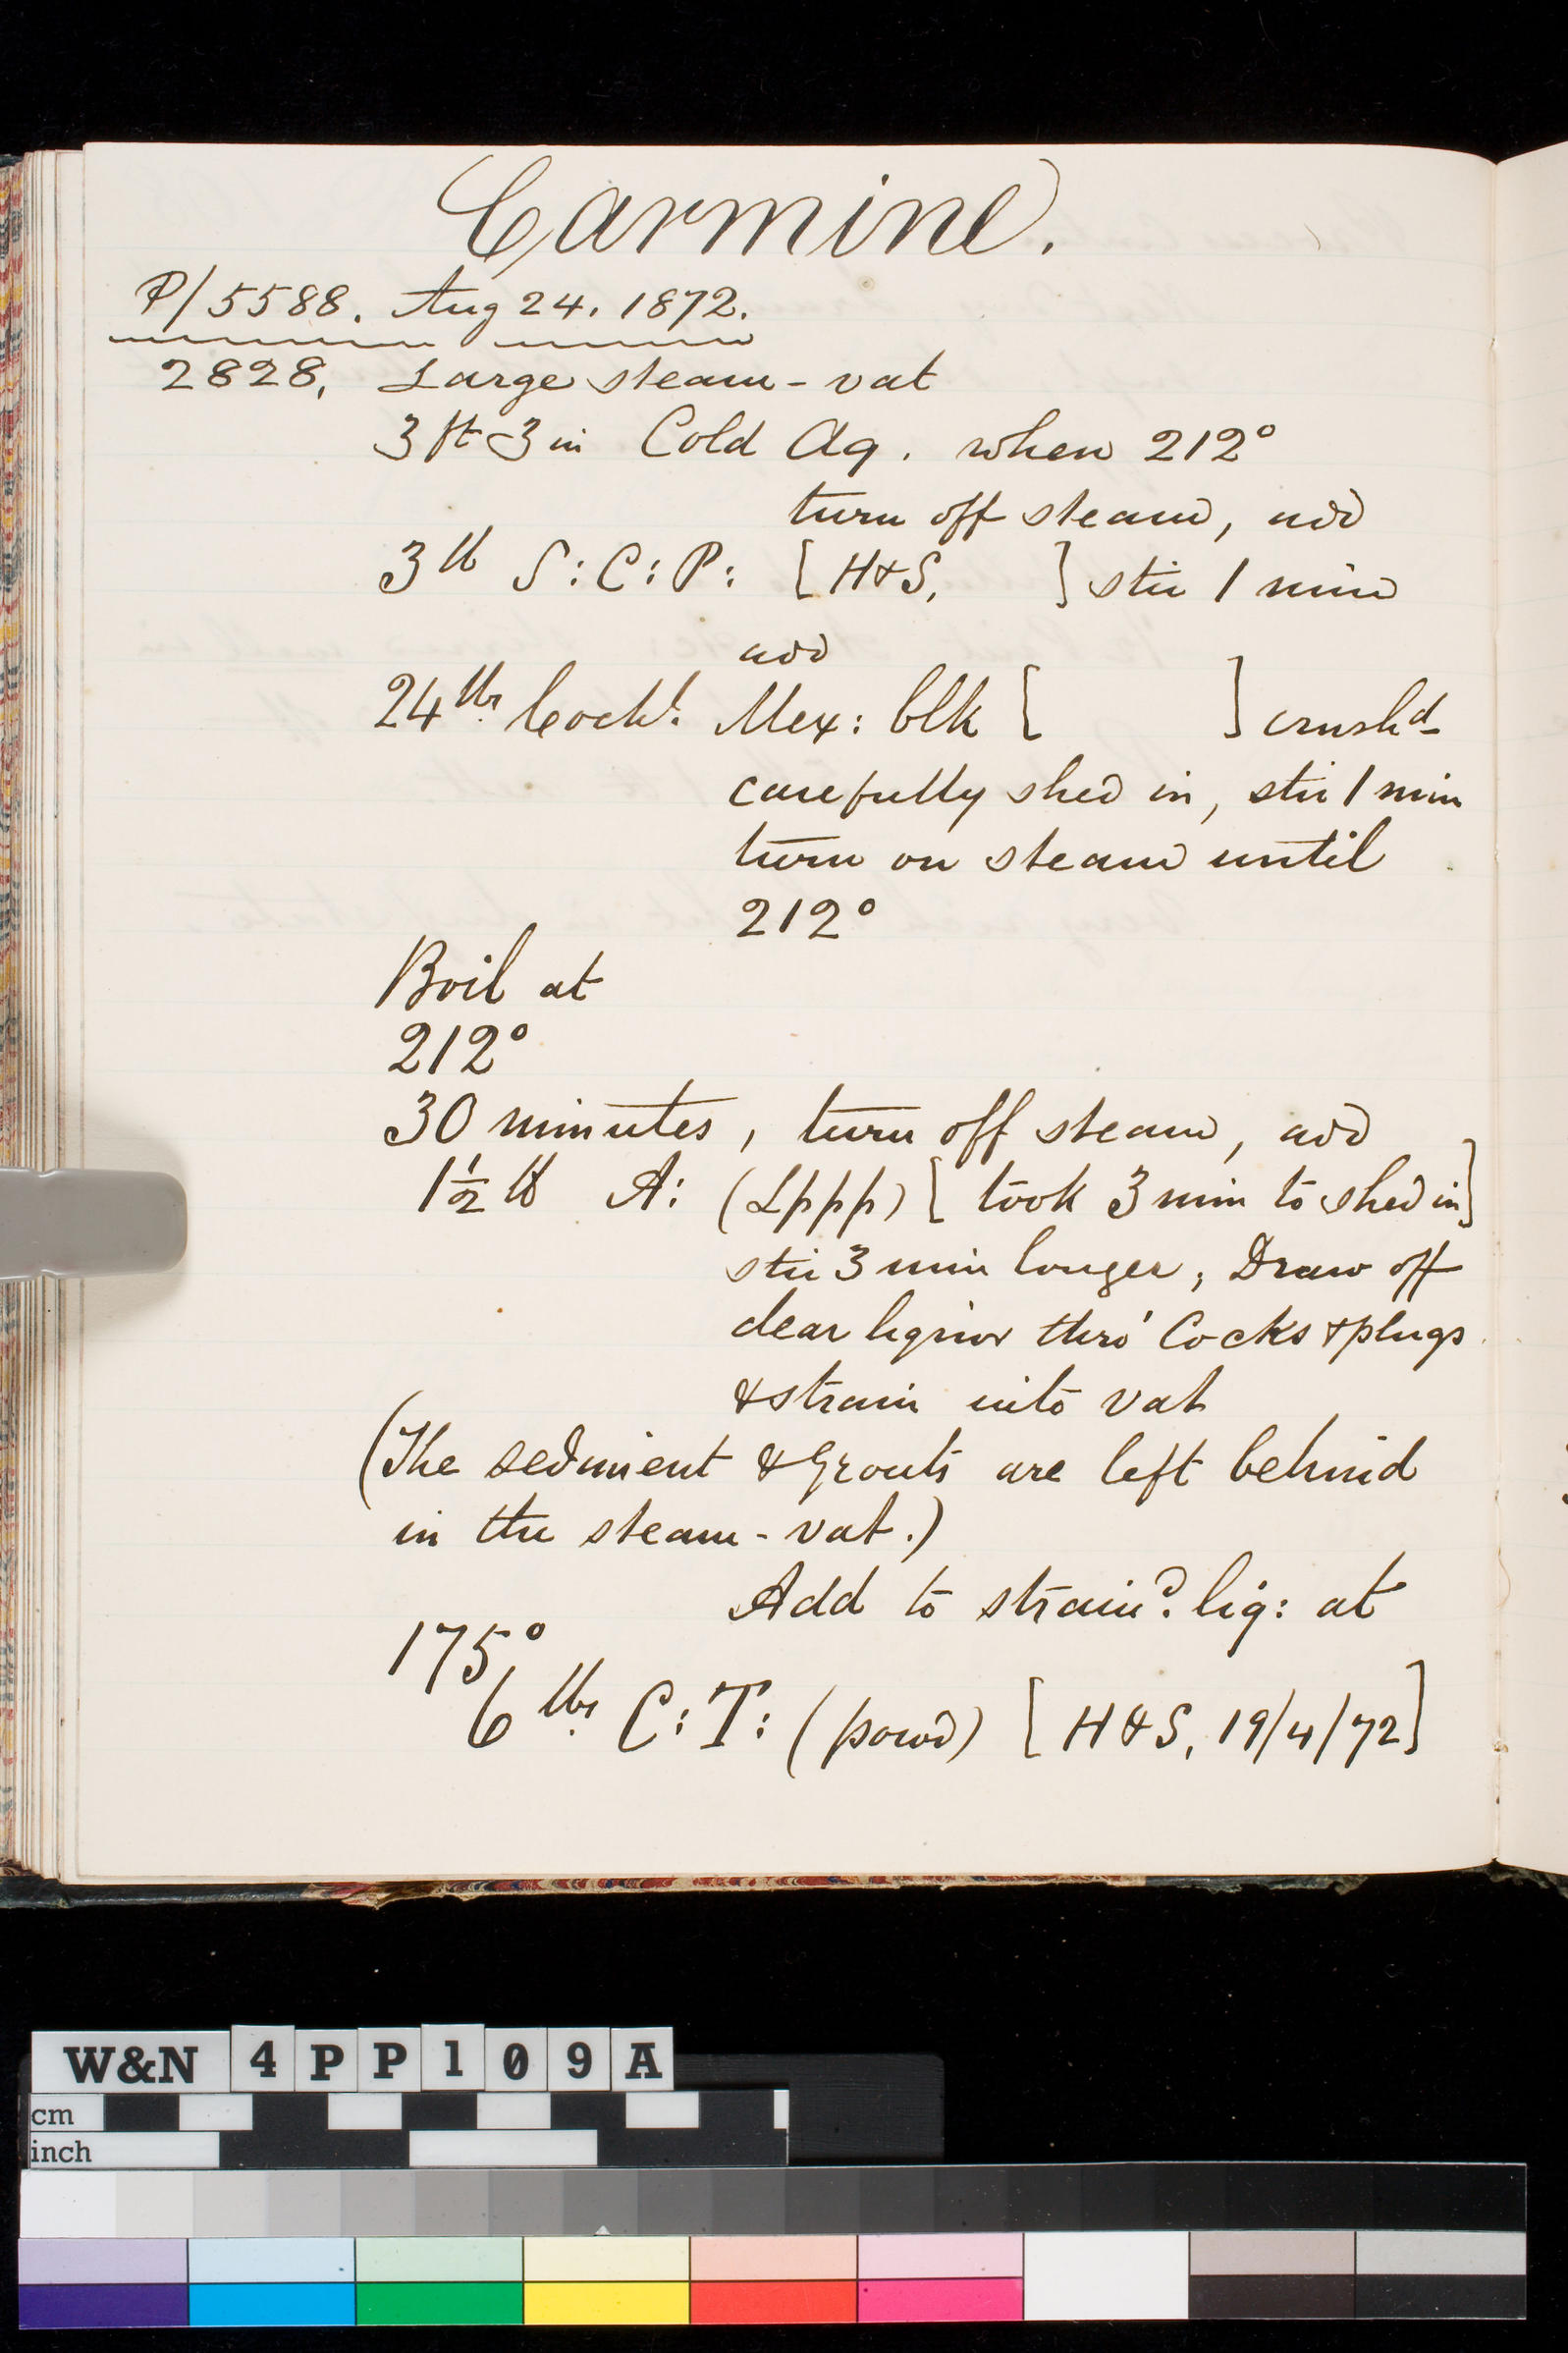 Carmine.
P/5588. Aug 24. 1872.
2828, Large steam-vat
3 ft 3 in Cold Aq. when 212°
turn off steam, add
3 lb S:C:P: [H&S, ] stir 1 min
add
24 lbs. Cochl. Mex: blk [ ] crushd
carefully shed in, stir 1 min
turn on steam until
212°
Boil at
212°
30 minutes, turn off steam, add
1½ lb A: (Lppp) [took 3 min to shed in]
stir 3 min longer, Draw off
clear liquor thro' Cocks & plugs
& strain into vat
(The sediment & Grouts are left behind
in the steam-vat.)
Add to straind. liq: at
175°
6 lbs. C:T: (powd) [H&S, 19/4/72]
W&N 4PP109A
cm
inch